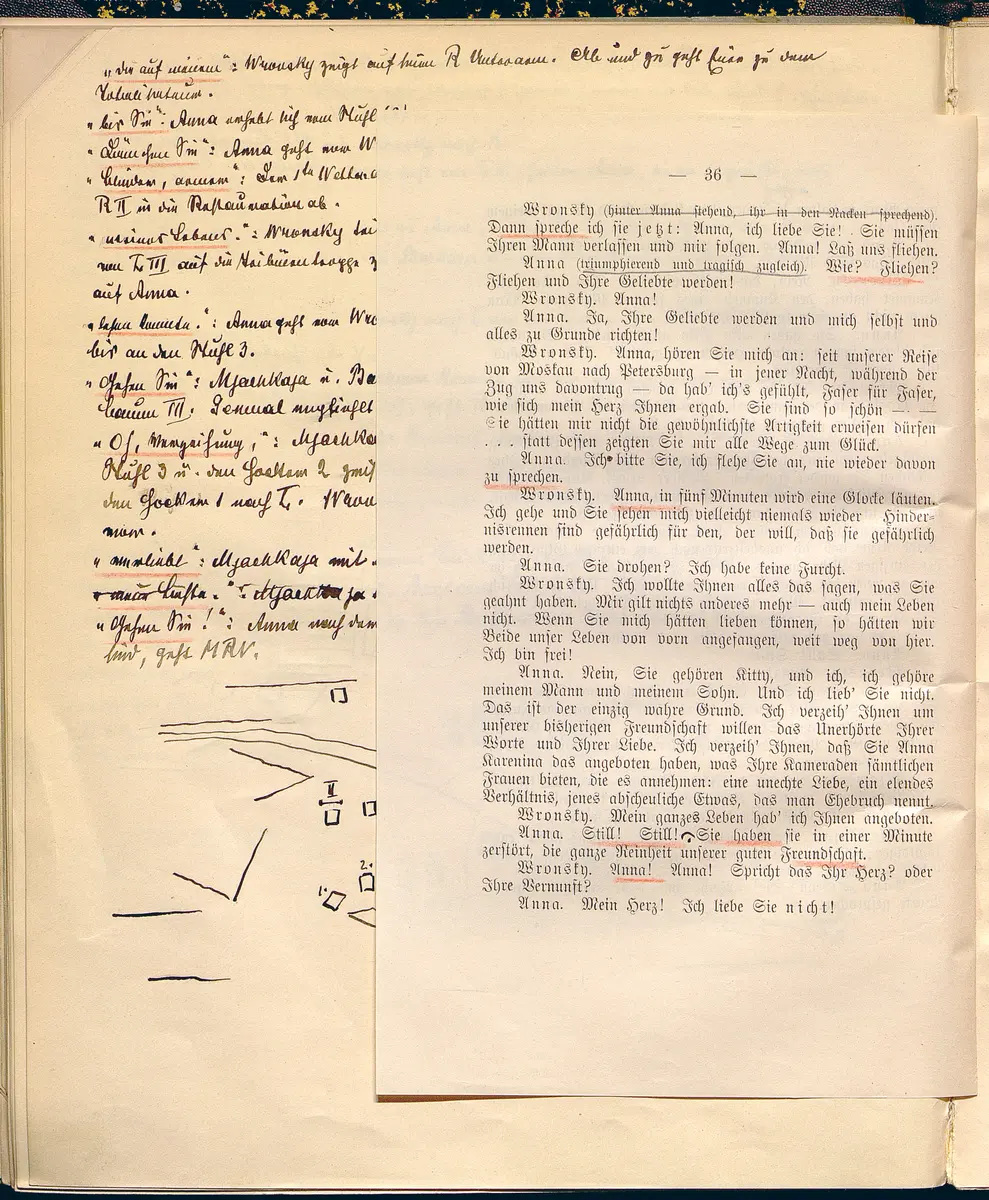 „die auf meinem“: Wronsky zeigt auf seinen R Unterarm. Ab und zu geht Einer zu dem
Totalisateur.
„bis Sie“: Anna erhebt sich vom Stuhl
„ Sie“: Anna geht vorn W
„blinden, armen“: Der 1te
R II in die Restauration ab.
„meines Lebens.“: Wronsky
von L III auf die Tribünentreppe
auf Anna.
„lesen konnte.“: Anna geht vorn Wro
bis an den Stuhl 3.
„Gehen Sie“: Mjachkaja u. Be
III.
„Oh, Verzeihung,“: Mjachka
Stuhl 3 u. den Hockern 2
den Hockern 1 nach L. Wron
vorn.
„verliebt“: Mjachkaja mit
Mjachkaja
„Gehen Sie!“: Anna nach dem
sind, geht MRV.
II
1. 2.
— 36 —
Wronsky (hinter Anna stehend, ihr in den Nacken sprechend).
Dann spreche ich sie jetzt: Anna, ich liebe Sie! Sie müssen
Ihren Mann verlassen und mir folgen. Anna! Laß uns fliehen.
Anna (triumphierend und tragisch zugleich). Wie? Fliehen?
Fliehen und Ihre Geliebte werden!
Wronsky. Anna!
Anna. Ja, Ihre Geliebte werden und mich selbst und
alles zu Grunde richten!
Wronsky. Anna, hören Sie mich an: seit unserer Reise
von Moskau nach Petersburg — in jener Nacht, während der
Zug uns davontrug — da hab' ich's gefühlt, Faser für Faser,
wie sich mein Herz Ihnen ergab. Sie sind so schön — —
Sie hätten mir nicht die gewöhnlichste Artigkeit erweisen dürfen
. . . statt dessen zeigten Sie mir alle Wege zum Glück.
Anna. Ich bitte Sie, ich flehe Sie an, nie wieder davon
zu sprechen.
Wronsky. Anna, in fünf Minuten wird eine Glocke läuten.
Ich gehe und Sie sehen mich vielleicht niemals wieder Hinder-
nisrennen sind gefährlich für den, der will, daß sie gefährlich
werden.
Anna. Sie drohen? Ich habe keine Furcht.
Wronsky. Ich wollte Ihnen alles das sagen, was Sie
geahnt haben. Mir gilt nichts anderes mehr — auch mein Leben
nicht. Wenn Sie mich hätten lieben können, so hätten wir
Beide unser Leben von vorn angefangen, weit weg von hier.
Ich bin frei!
Anna. Nein, Sie gehören Kitty, und ich, ich gehöre
meinem Mann und meinem Sohn. Und ich lieb' Sie nicht.
Das ist der einzig wahre Grund. Ich verzeih' Ihnen um
unserer bisherigen Freundschaft willen das Unerhörte Ihrer
Worte und Ihrer Liebe. Ich verzeih' Ihnen, daß Sie Anna
Karenina das angeboten haben, was Ihre Kameraden sämtlichen
Frauen bieten, die es annehmen: eine unechte Liebe, ein elendes
Verhältnis, jenes abscheuliche Etwas, das man Ehebruch nennt.
Wronsky. Mein ganzes Leben hab' ich Ihnen angeboten.
Anna. Still! Still! Sie haben sie in einer Minute
zerstört, die ganze Reinheit unserer guten Freundschaft.
Wronsky. Anna! Anna! Spricht das Ihr Herz? oder
Ihre Vernunft?
Anna. Mein Herz! Ich liebe Sie nicht!